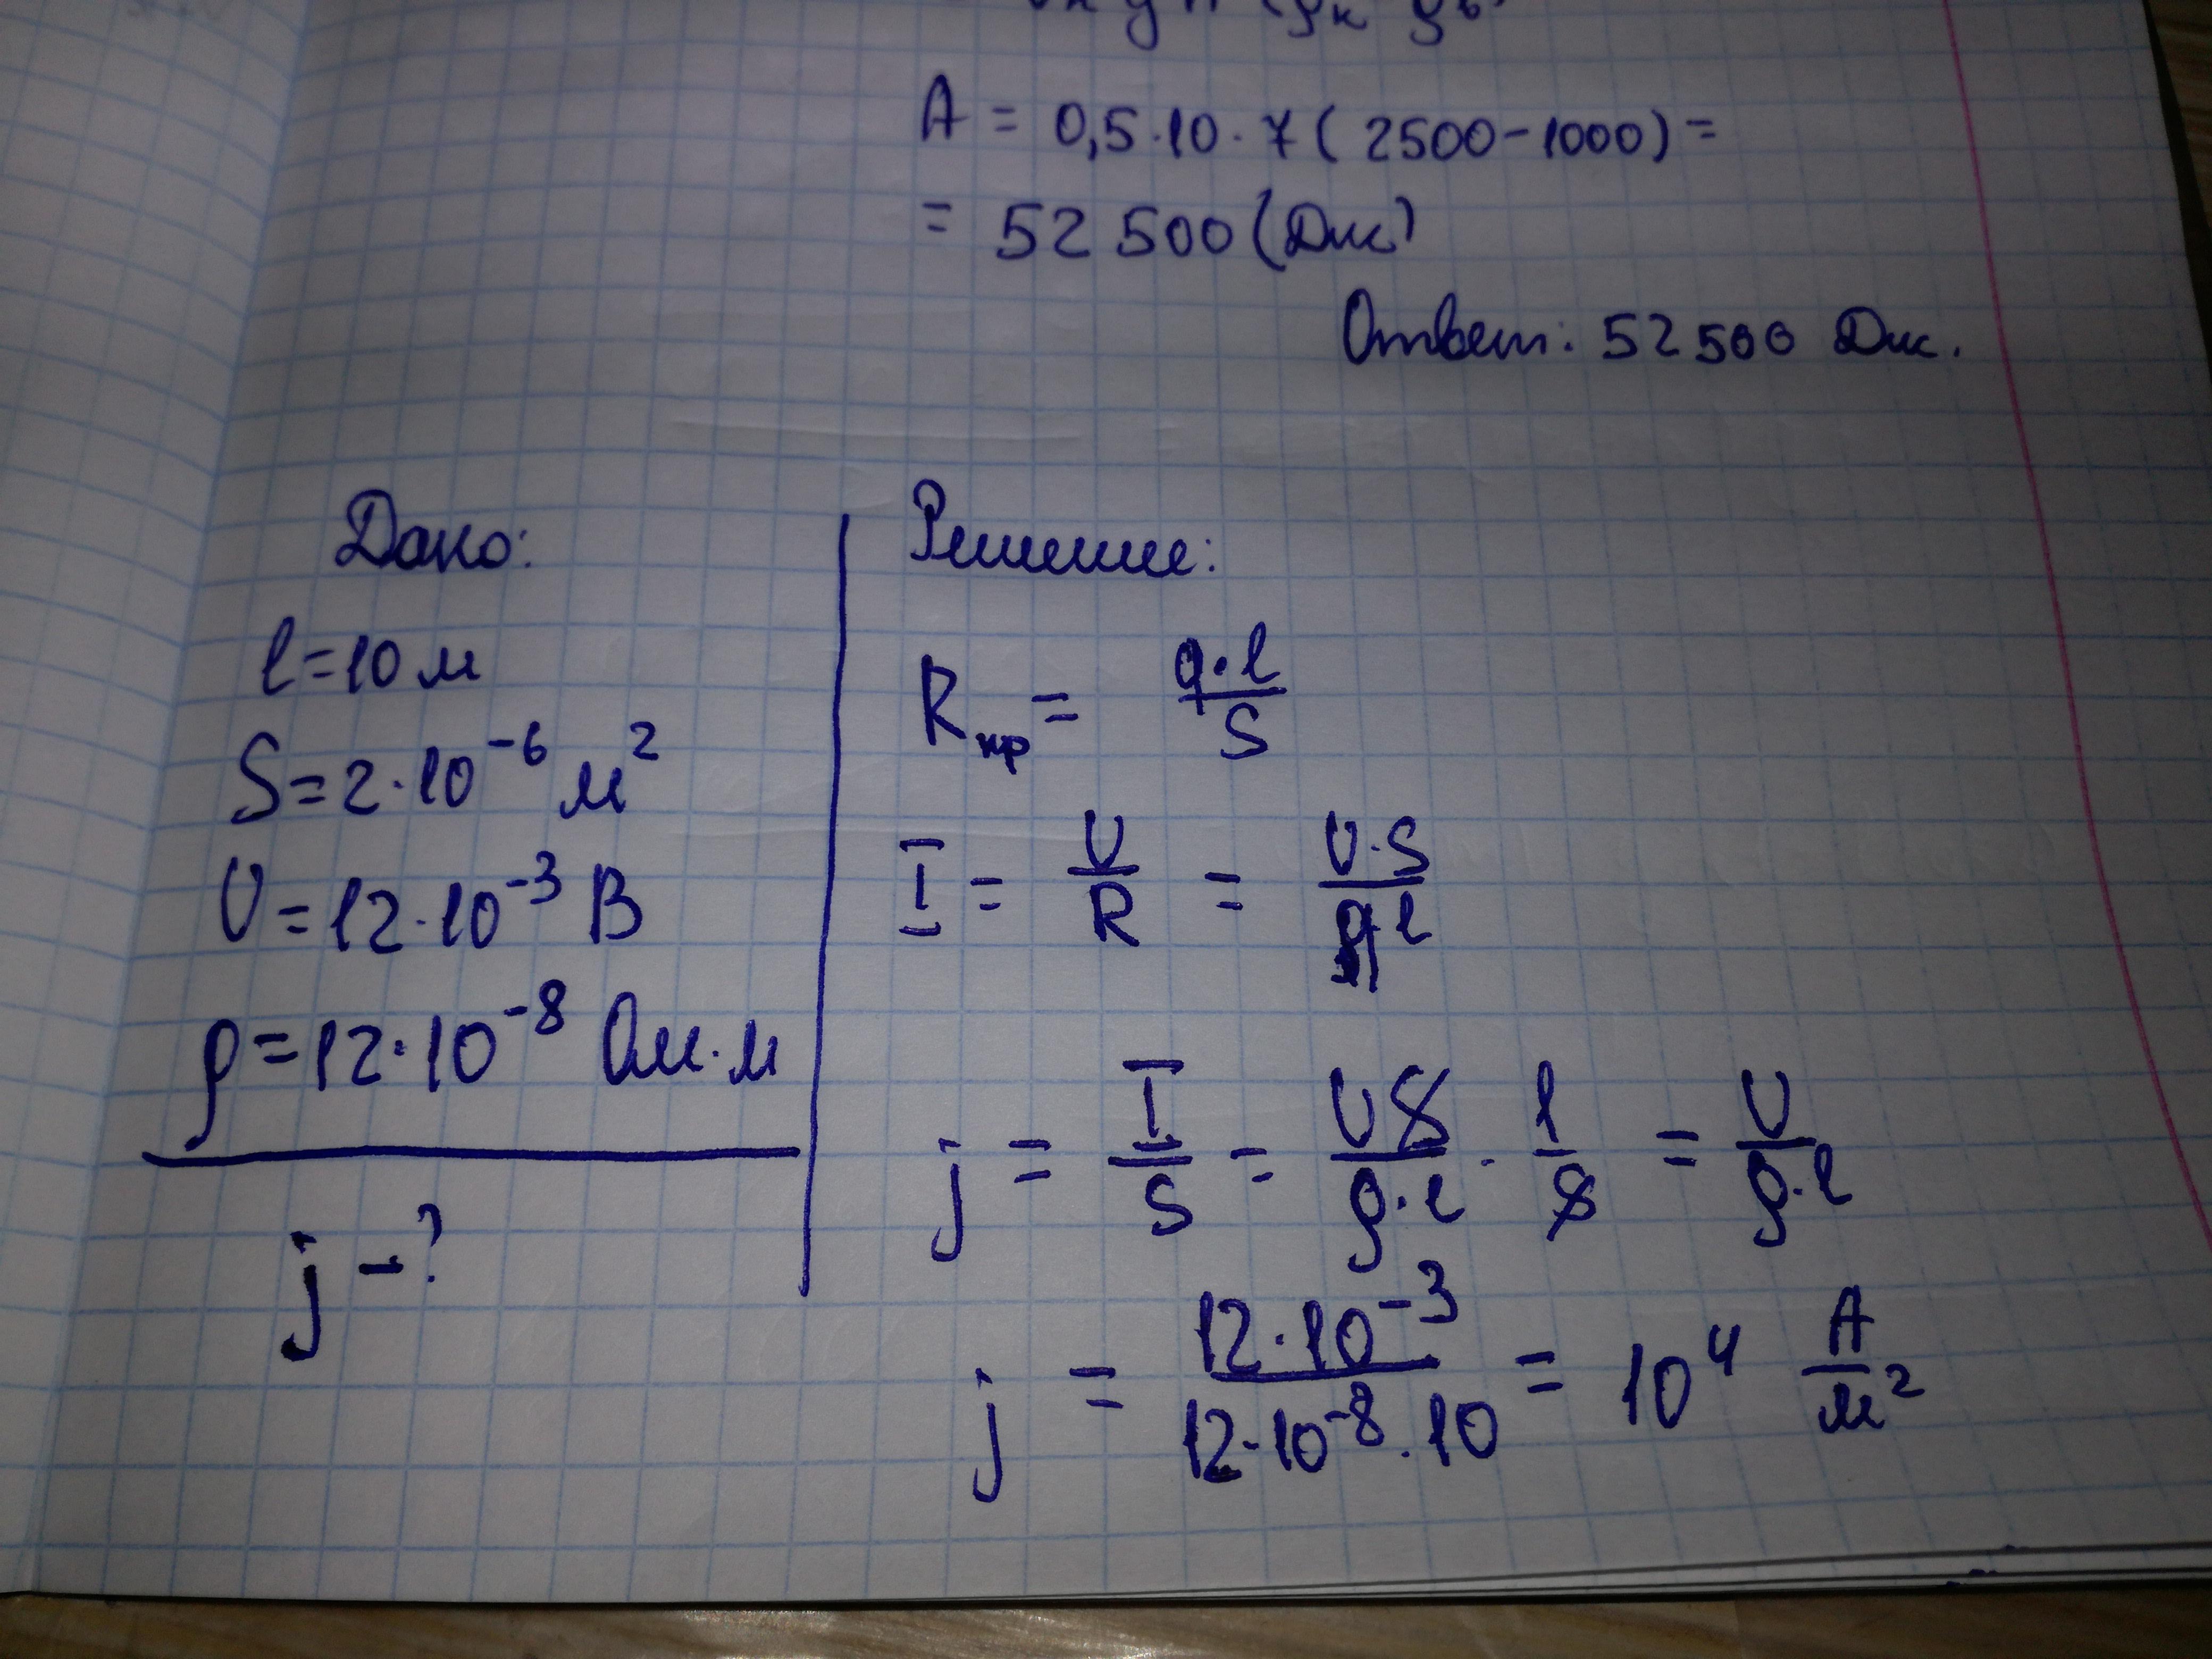 A = 0,5·10·7(2500-1000)=
= 52 500 (Дж)
Ответ: 52 500 Дж.
Дано:
l=10 м
S=2·10⁻⁶ м²
U=12·10⁻³ В
ρ=12·10⁻⁸ Ом·м
j-?
Решение:
Rпр = ρ·l/S
I = U/R = U·S/ρl
j = I/S = US/ρ·l · 1/S = U/ρ·l
j = 12·10⁻³/12·10⁻⁸·10 = 10⁴ А/м²